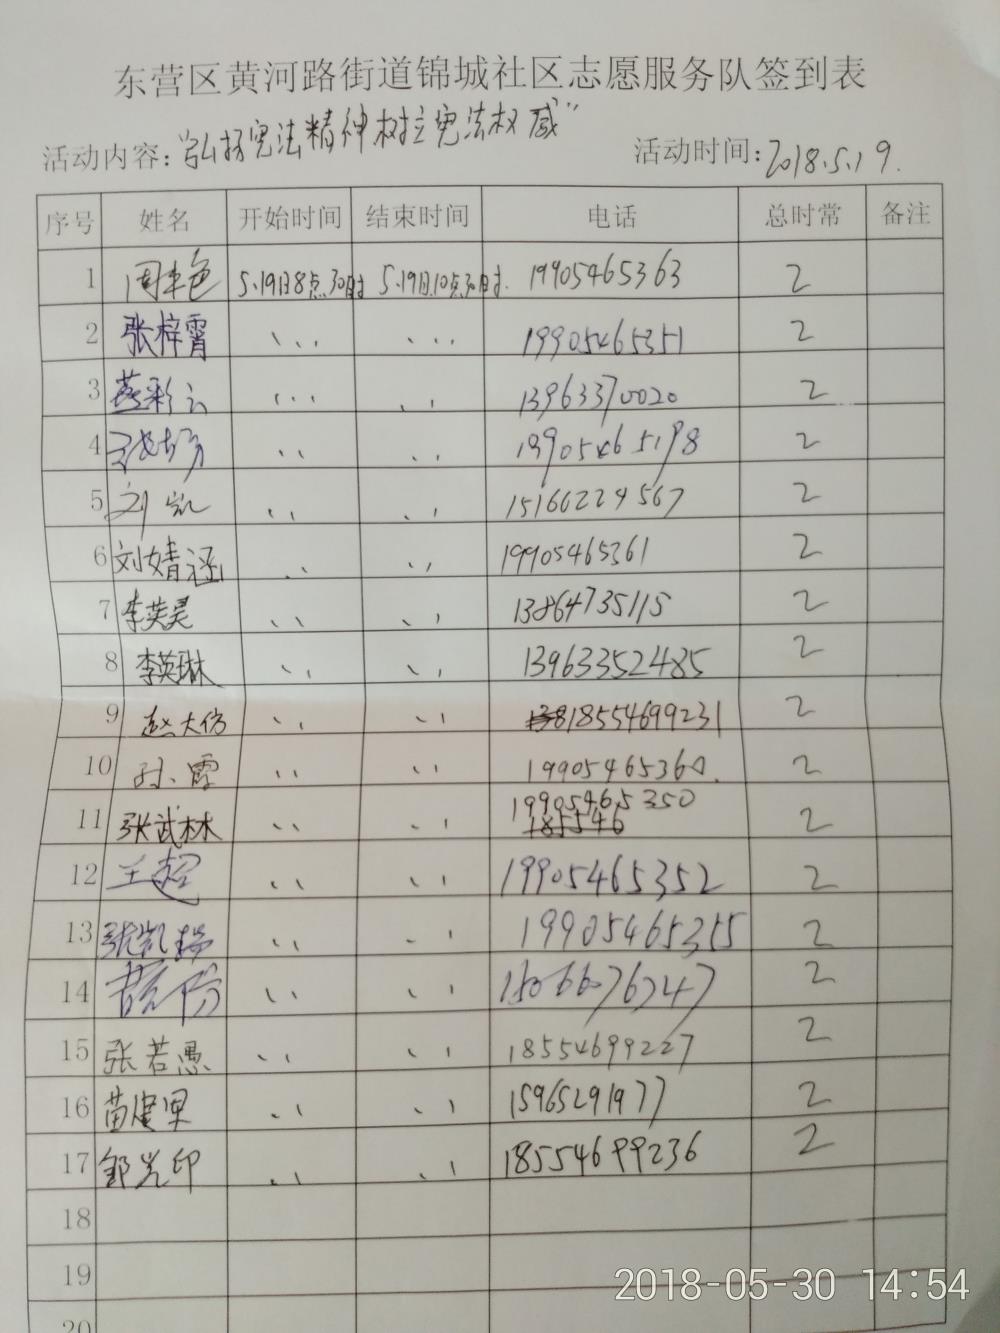 东营区黄河路街道锦城社区志愿服务队签到表
活动内容:"弘扬宪法精神树立宪法权威" 活动时间:2018.5.19.
序号 姓名 开始时间 结束时间 电话 总时常 备注
1 5.19日8点30时 5.19日10点30时. 19905465363 2
2 张梓霄 、、、 、、、 19905465351 2
3 燕彩云 、、、 、、 13963370020 2
4 、、 、、 19905465198 2
5 刘凯 、、 、、 15166224567 2
6 刘婧涵 、、 、、 19905465361 2
7 李英昊 、、 、、 13864735115 2
8 李英琳 、、 、、 13963352485 2
9 赵大伤 、、 、、 18554699231 2
10 孙霞 、、 、、 19905465360. 2
11 张武林 、、 、、 19905465350 2
185546
12 王超 、、 、、 19905465352 2
13 张凯 、、 、、 19905465355 2
14 、、 、、 2
15 张若愚 、、 、、 18554699227 2
16 苗建军 、、 、、 15965291977 2
17 邹光印 、、 、、 18554699236 2
18
19
20
2018-05-30 14:54